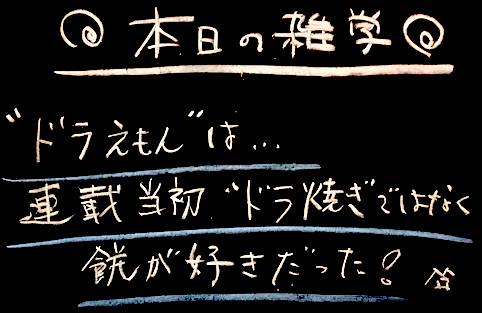 本日の雑学
“ドラえもん”は...
連載当初“ドラ焼き”ではなく
餅が好きだった!